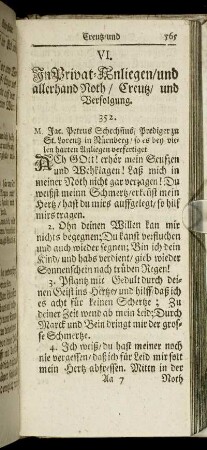 Creutz und 565
VI.
In Privat-Anliegen/und
allerhand Noth / Creutz / und
Verfolgung.
352.
M. Jac. Petrus Schechsius, Prediger zu
St. Lorentz in Nürnberg / so es bey vie-
len harten Anliegen verfertiget
ACh GOtt! erhör mein Seufzen
und Wehklagen! Laß mich in
meiner Noth nicht gar verzagen! Du
weißst meinn Schmertz/erkeñst mein
Hertz / hast du mirs auffgelegt/ so hilf
mirs tragen.
2. Ohn deinen Willen kan mir
nichts begegnen; Du kanst verfluchen
und auch wieder segnen; Bin ich dein
Kind/ und habs verdient/ gieb wieder
Sonnenschein nach trüben Regen!
3. Pflantz mir Gedult durch dei-
nen Geist ins Hertze/ und hilff/daß ich
es acht für keinen Schertze; Zu
deiner Zeit wend ab mein leid; Durch
Marck und Bein dringt mir der gros-
se Schmertze.
4. Ich weiß/ du hast meiner noch
nie vergessen/ daß ich für Leid mir solt
mein Hertz abfressen. Mitten in der
Aa 7 Noth